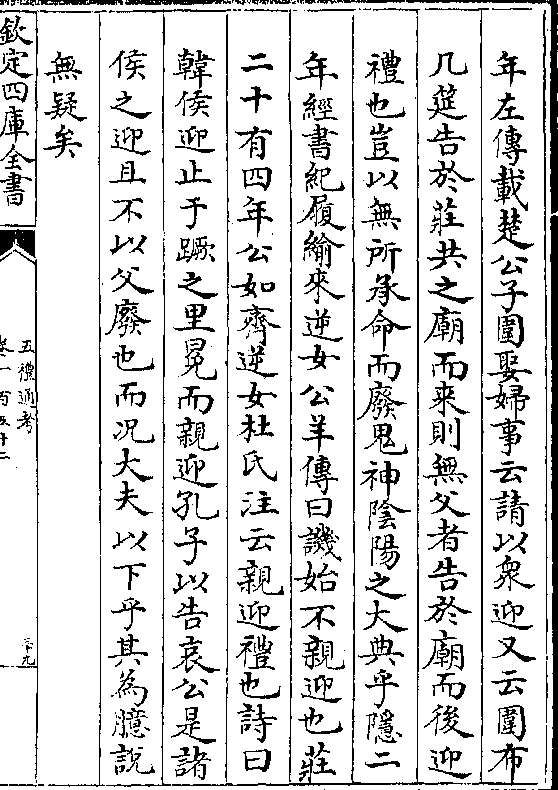 年左傳載楚公子圍娶婦事云請以衆迎又云圍布
几筵告於莊共之廟而來則無父者告於廟而後迎
禮也豈以無所承命而廢鬼神陰陽之大典乎隱二
年經書紀履緰來逆女公羊傳曰譏始不親迎也莊
二十有四年公如齊逆女杜氏注云親迎禮也詩曰
韓侯迎止于蹶之里冕而親迎孔子以告哀公是諸
侯之迎且不以父廢也而况大夫以下乎其為臆說
無疑矣
欽定四庫全書
五禮通考
卷一百五十二
三十九